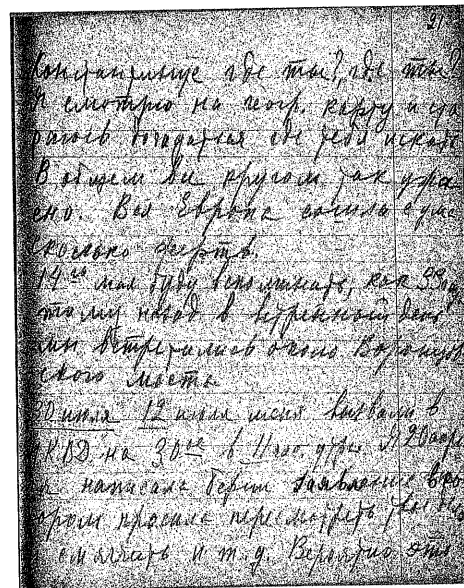 21
Константинус где ты?, где ты?
Я смотрю на геогр. карту и ста
раюсь догадаться где тебя искать
В общем все кругом так ужа
сно. Вся Европа сошла с ума
сколько жертв.
14го мая буду вспоминать, как
тому назад в ветренный день
мы встретились около Воронцов
ского моста
30 июля 12 июля меня вызвали в
НКВД на 30ое в 11 час утра. Я 20
написала Берии заявление в ко
тором просила пересмотреть твое дело
смягчить и т.д. Вероятно это